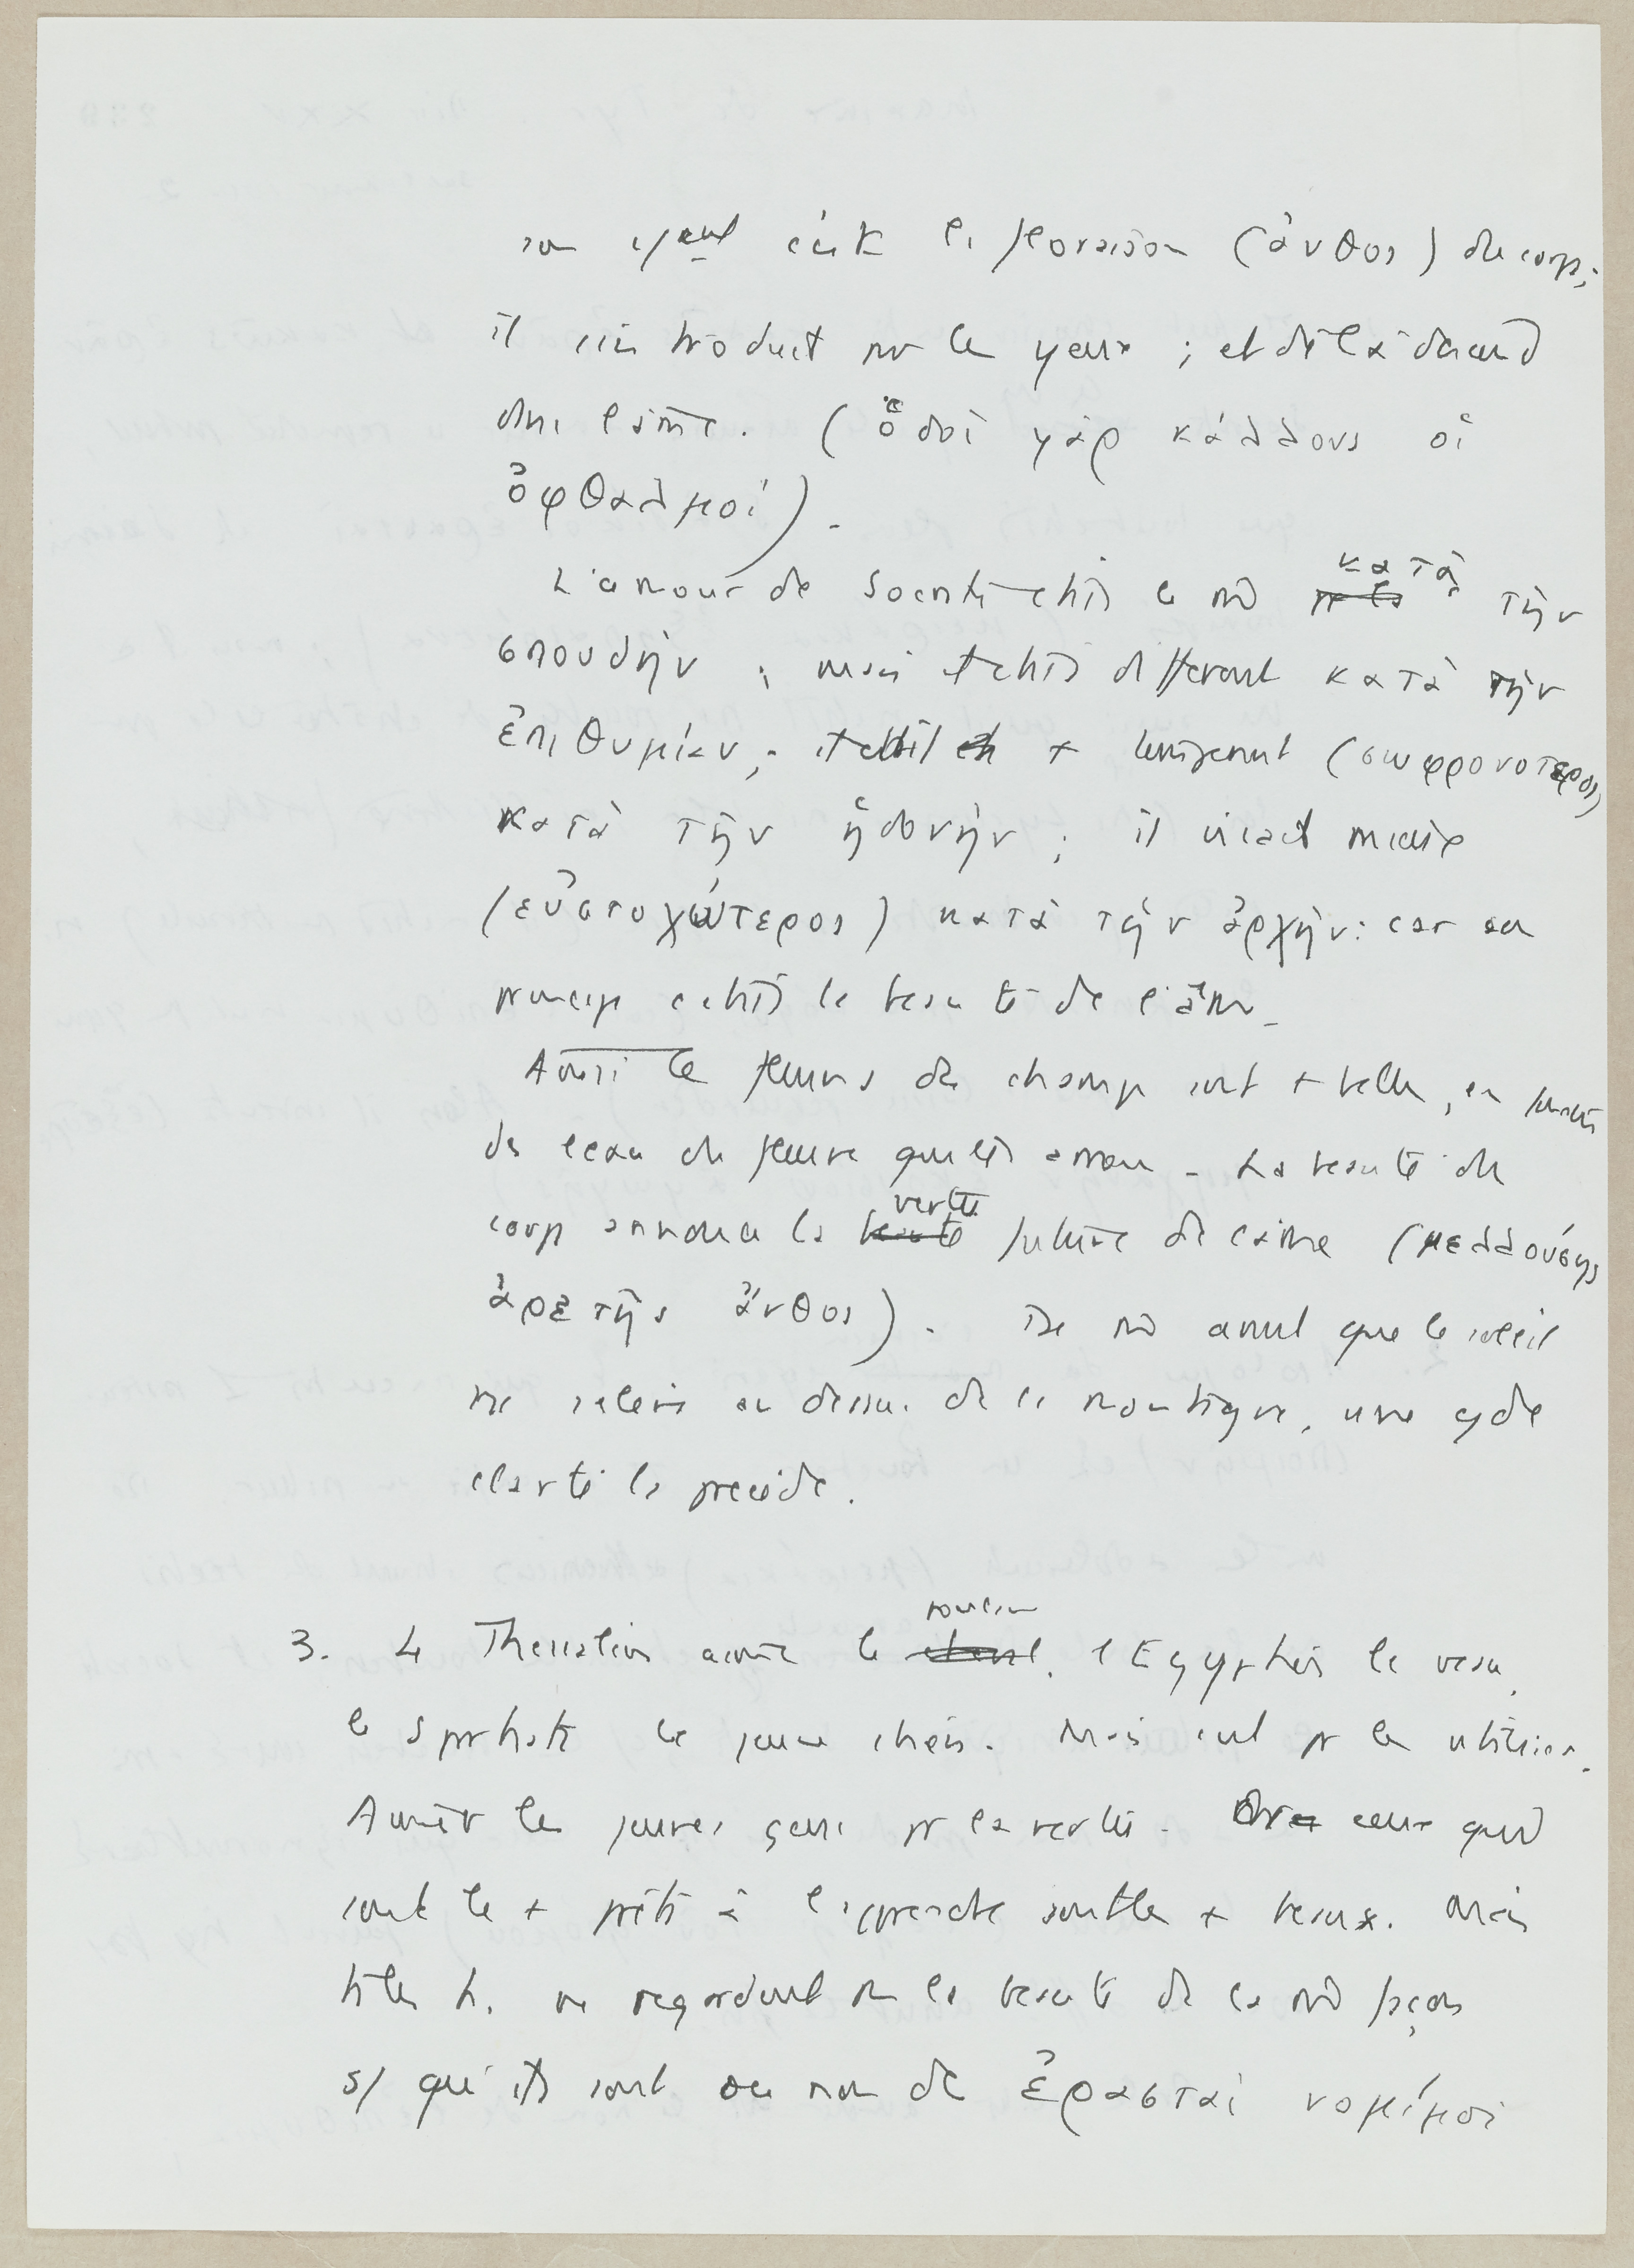 son agent c'est la floraison (ἄνθος) du corps;
il s'introduit par les yeux ; et de là descend
dans l'âme. (ὁδοὶ γὰρ κάλλους οἱ
ὀφθαλμοί).
L'amour de Socrate était le m̂ κατὰ τὴν
σπουδὴν ; mais était différent κατὰ τὴν
ἐπιθυμίαν ; était + (σωφρονοτερος)
κατὰ τὴν ἡδονὴν ; il visait mieux
(εὐστοχώτερος) κατὰ τὴν ἀρχὴν: car son
principe était la beauté de l'âme.
Ainsi les fleurs des champs sont + belles, en
de l'eau du fleuve qui les arrose. La beauté du
corps annonce la vertu future de l'âme (μελλούσης
ἀρετῆς ἄνθος). De m̂ avant que le soleil
ne s'élève au dessus de la montagne, une
clarté le précède.
3. Le Thessalien aime le poulain, l'Egyptien le veau,
le Spartiate le jeune chien. Mais c'est pr les utiliser.
Aimer les jeunes gens pr la vertu. ceux qui
sont le + prêts à l'apprendre sont les + beaux. Mais
ts les h. ne regardent pas la beauté de la m̂ façon
s/ qu'ils sont ou non de ἐρασταὶ νομίμοι